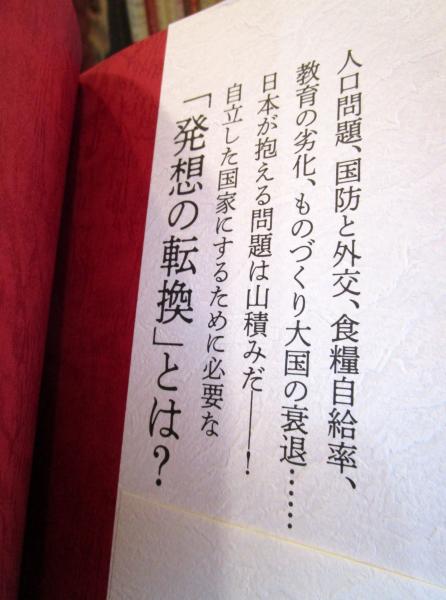 人口問題、国防と外交、食糧自給率、
教育の劣化、ものづくり大国の衰退……
日本が抱える問題は山積みだ――！
自立した国家にするために必要な
「発想の転換」とは？